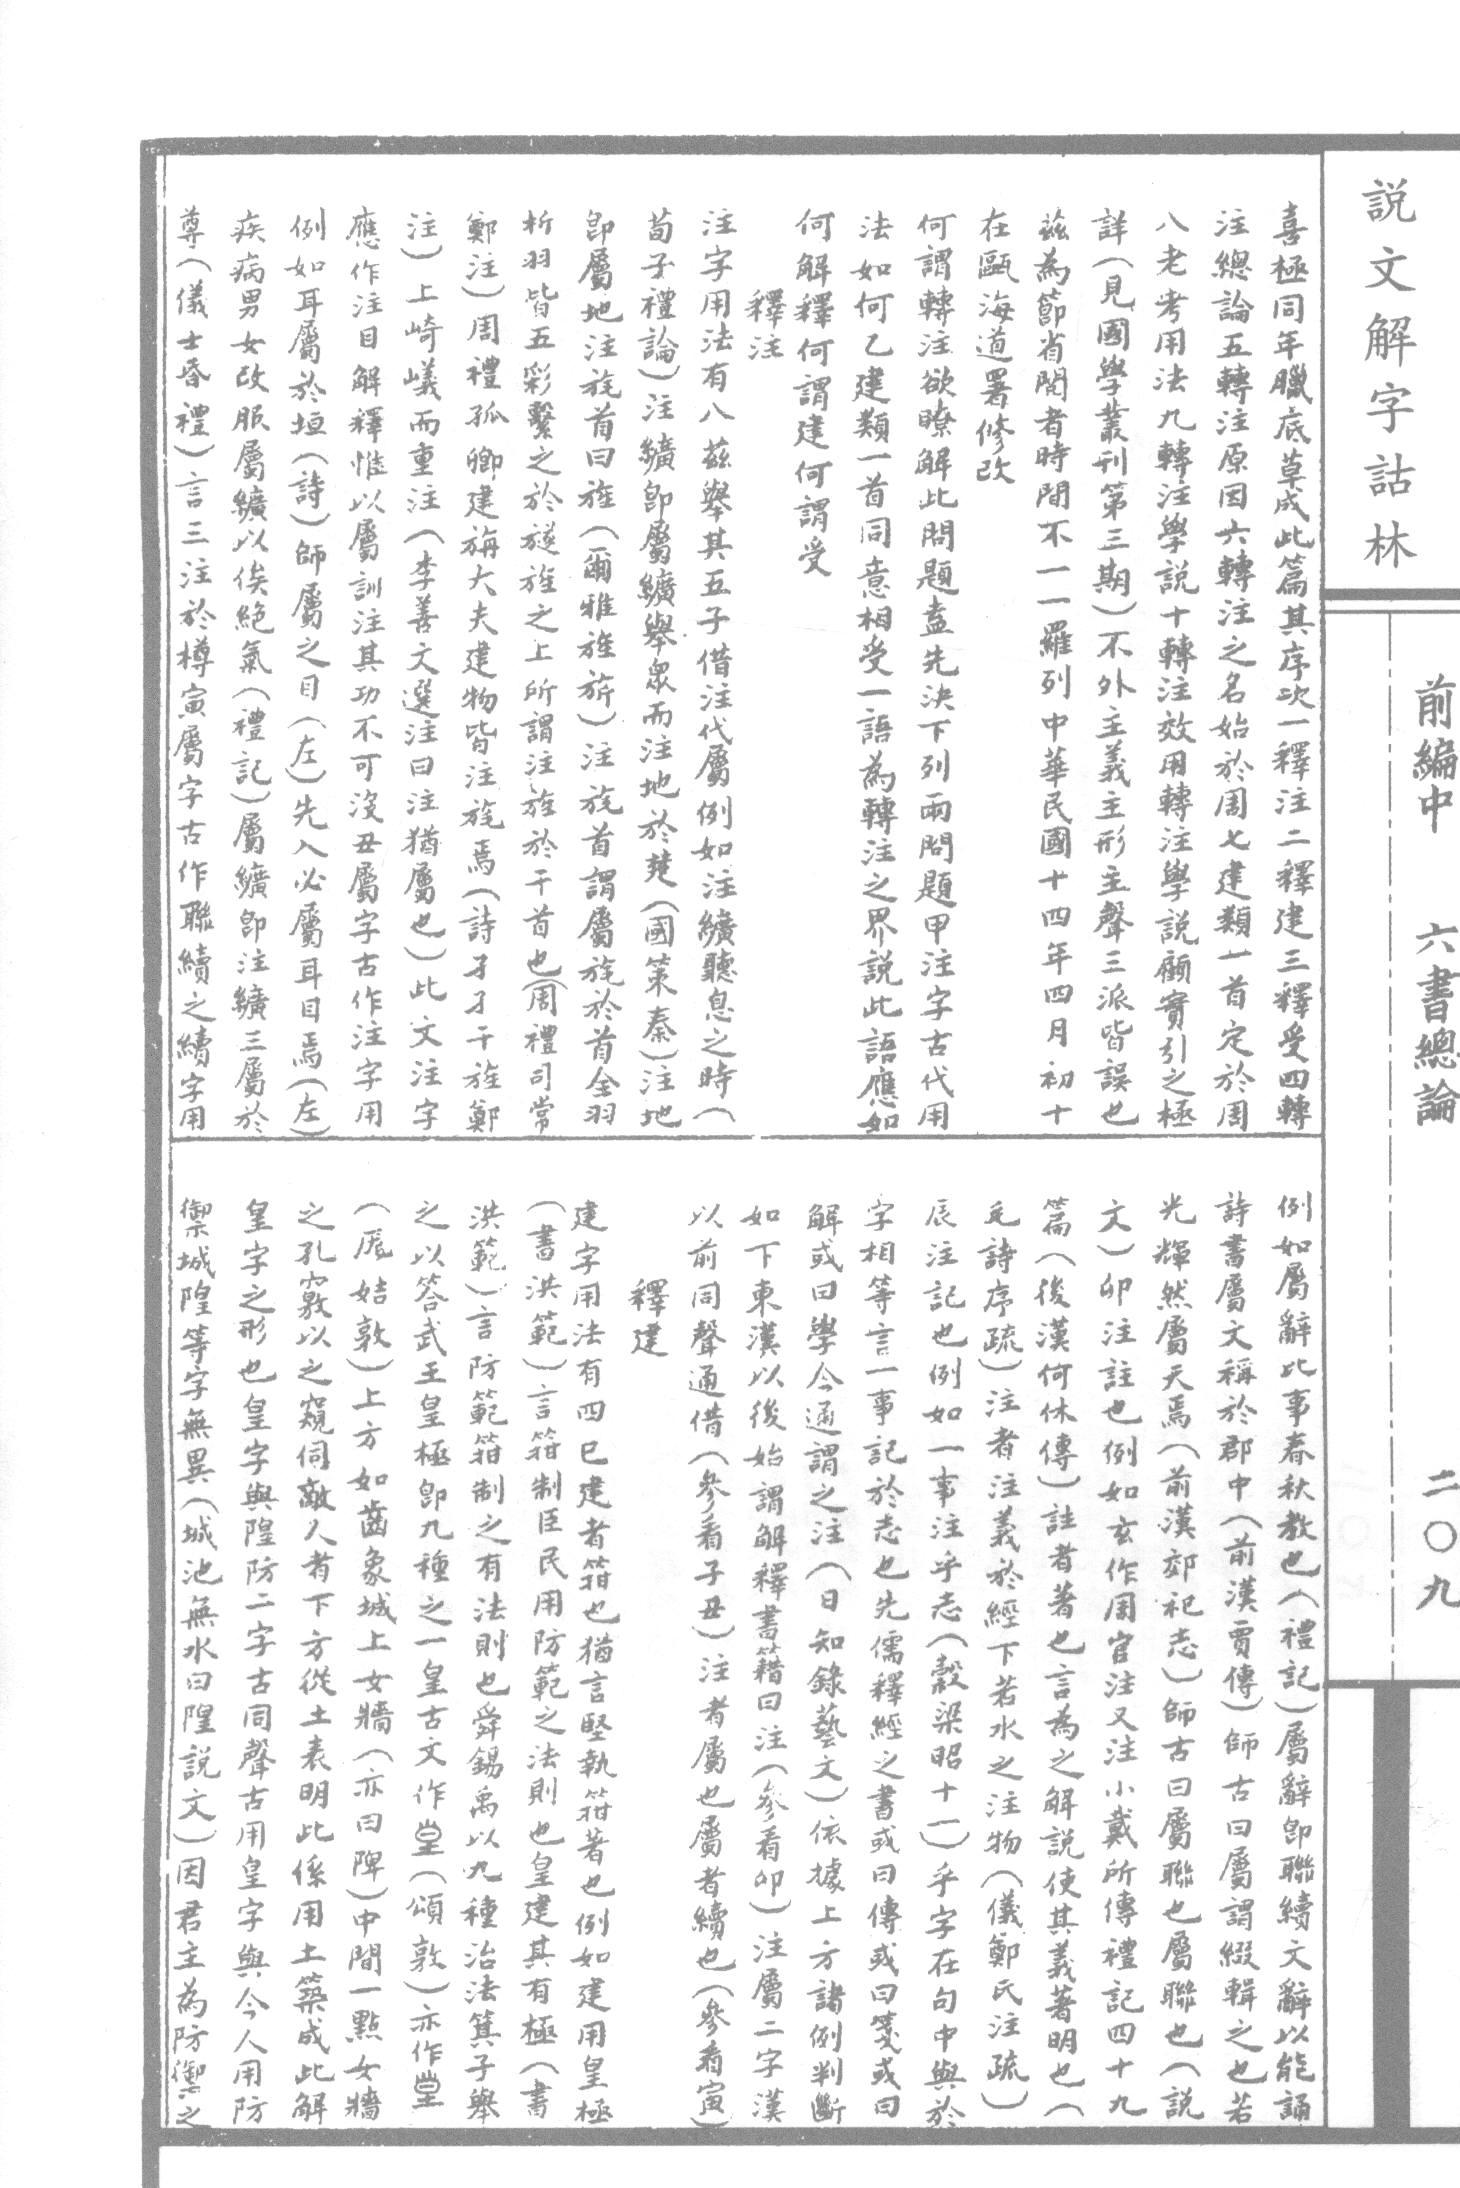 説文解字詁林
前編中　六書總論　二〇九
喜極同年臘底草成此篇其序次一釋注二釋建三釋受四轉
注總論五轉注原因六轉注之名始於周七建類一首定於周
八老考用法九轉注學説十轉注效用轉注學説顧實引之極
詳（見國學叢刊第三期）不外主義主形主聲三派皆誤也
茲為節省閱者時間不一一羅列中華民國十四年四月初十
在甌海道署修改
何謂轉注欲瞭解此問題盍先決下列兩問題甲注字古代用
法如何乙建類一首同意相受一語為轉注之界説此語應如
何解釋何謂建何謂受
釋注
注字用法有八茲舉其五子借注代屬例如注纊聽息之時（
荀子禮論）注纊卽屬纊舉衆而注地於楚（國策秦）注地
卽屬地注旄首曰旌（爾雅旌旂）注旄首謂屬旄於首全羽
析羽皆五彩繫之於旞旌之上所謂注旌於干首也（周禮司常
鄭注）周禮孤卿建旃大夫建物皆注旄焉（詩孑孑干旌鄭
注）上崎嶬而重注（李善文選注曰注猶屬也）此文注字
應作注目解釋惟以屬訓注其功不可沒丑屬字古作注字用
例如耳屬於垣（詩）師屬之目（左）先入必屬耳目焉（左）
疾病男女改服屬纊以俟絕氣（禮記）屬纊卽注纊三屬於
尊（儀士昏禮）言三注於樽寅屬字古作聯續之續字用
例如屬辭比事春秋教也（禮記）屬辭卽聯續文辭以能誦
詩書屬文稱於郡中（前漢賈傳）師古曰屬謂綴輯之也若
光輝然屬天焉（前漢郊祀志）師古曰屬聯也屬聯也（説
文）卯注註也例如玄作周官注又注小戴所傳禮記四十九
篇（後漢何休傳）註者著也言為之解説使其義著明也（
毛詩序疏）注者注義於經下若水之注物（儀鄭氏注疏）
辰注記也例如一事注乎志（穀梁昭十一）乎字在句中與於
字相等言一事記於志也先儒釋經之書或曰傳或曰箋或曰
解或曰學今通謂之注（日知錄藝文）依據上方諸例判斷
如下東漢以後始謂解釋書籍曰注（參看卯）注屬二字漢
以前同聲通借（參看子丑）注者屬也屬者續也（參看寅）
釋建
建字用法有四巳建者箝也猶言堅執箝著也例如建用皇極
（書洪範）言箝制臣民用防範之法則也皇建其有極（書
洪範）言防範箝制之有法則也舜錫禹以九種治法箕子舉
之以答武王皇極卽九種之一皇古文作（頌敦）亦作
（㞂姞敦）上方如齒象城上女牆（亦曰陴）中間一點女牆
之孔竅以之窺伺敵人者下方從土表明此係用土築成此解
皇字之形也皇字與隍防二字古同聲古用皇字與今人用防
禦城隍等字無異（城池無水曰隍説文）因君主為防禦之